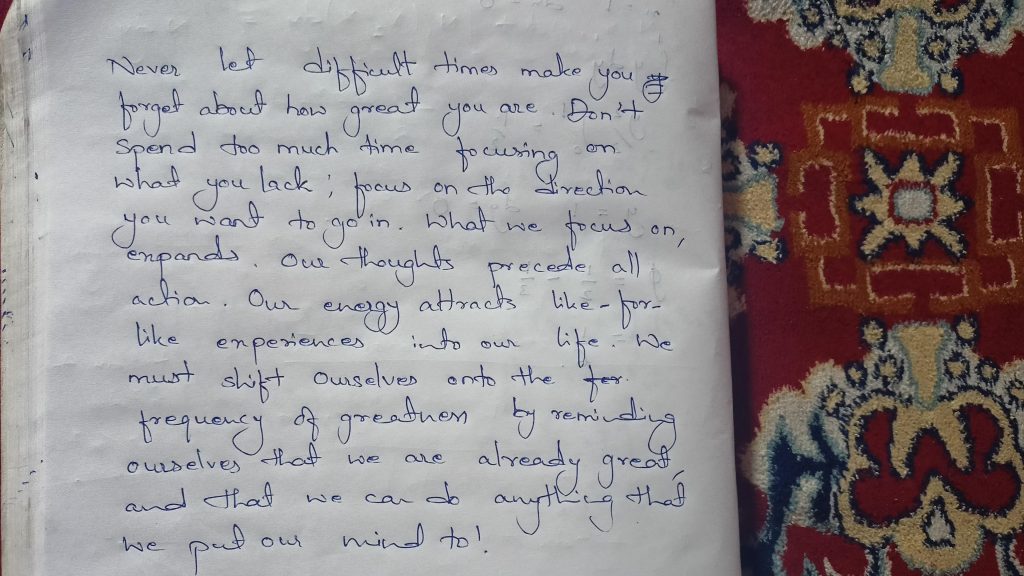 Never let difficult times make you
forget about how great you are. Don't
spend too much time focusing on
what you lack; focus on the direction
you want to go in. What we focus on,
expands. Our thoughts precede all
action. Our energy attracts like-for-
like experiences into our life. We
must shift ourselves onto the fer
frequency of greatness by reminding
ourselves that we are already great,
and that we can do anything that
we put our mind to!